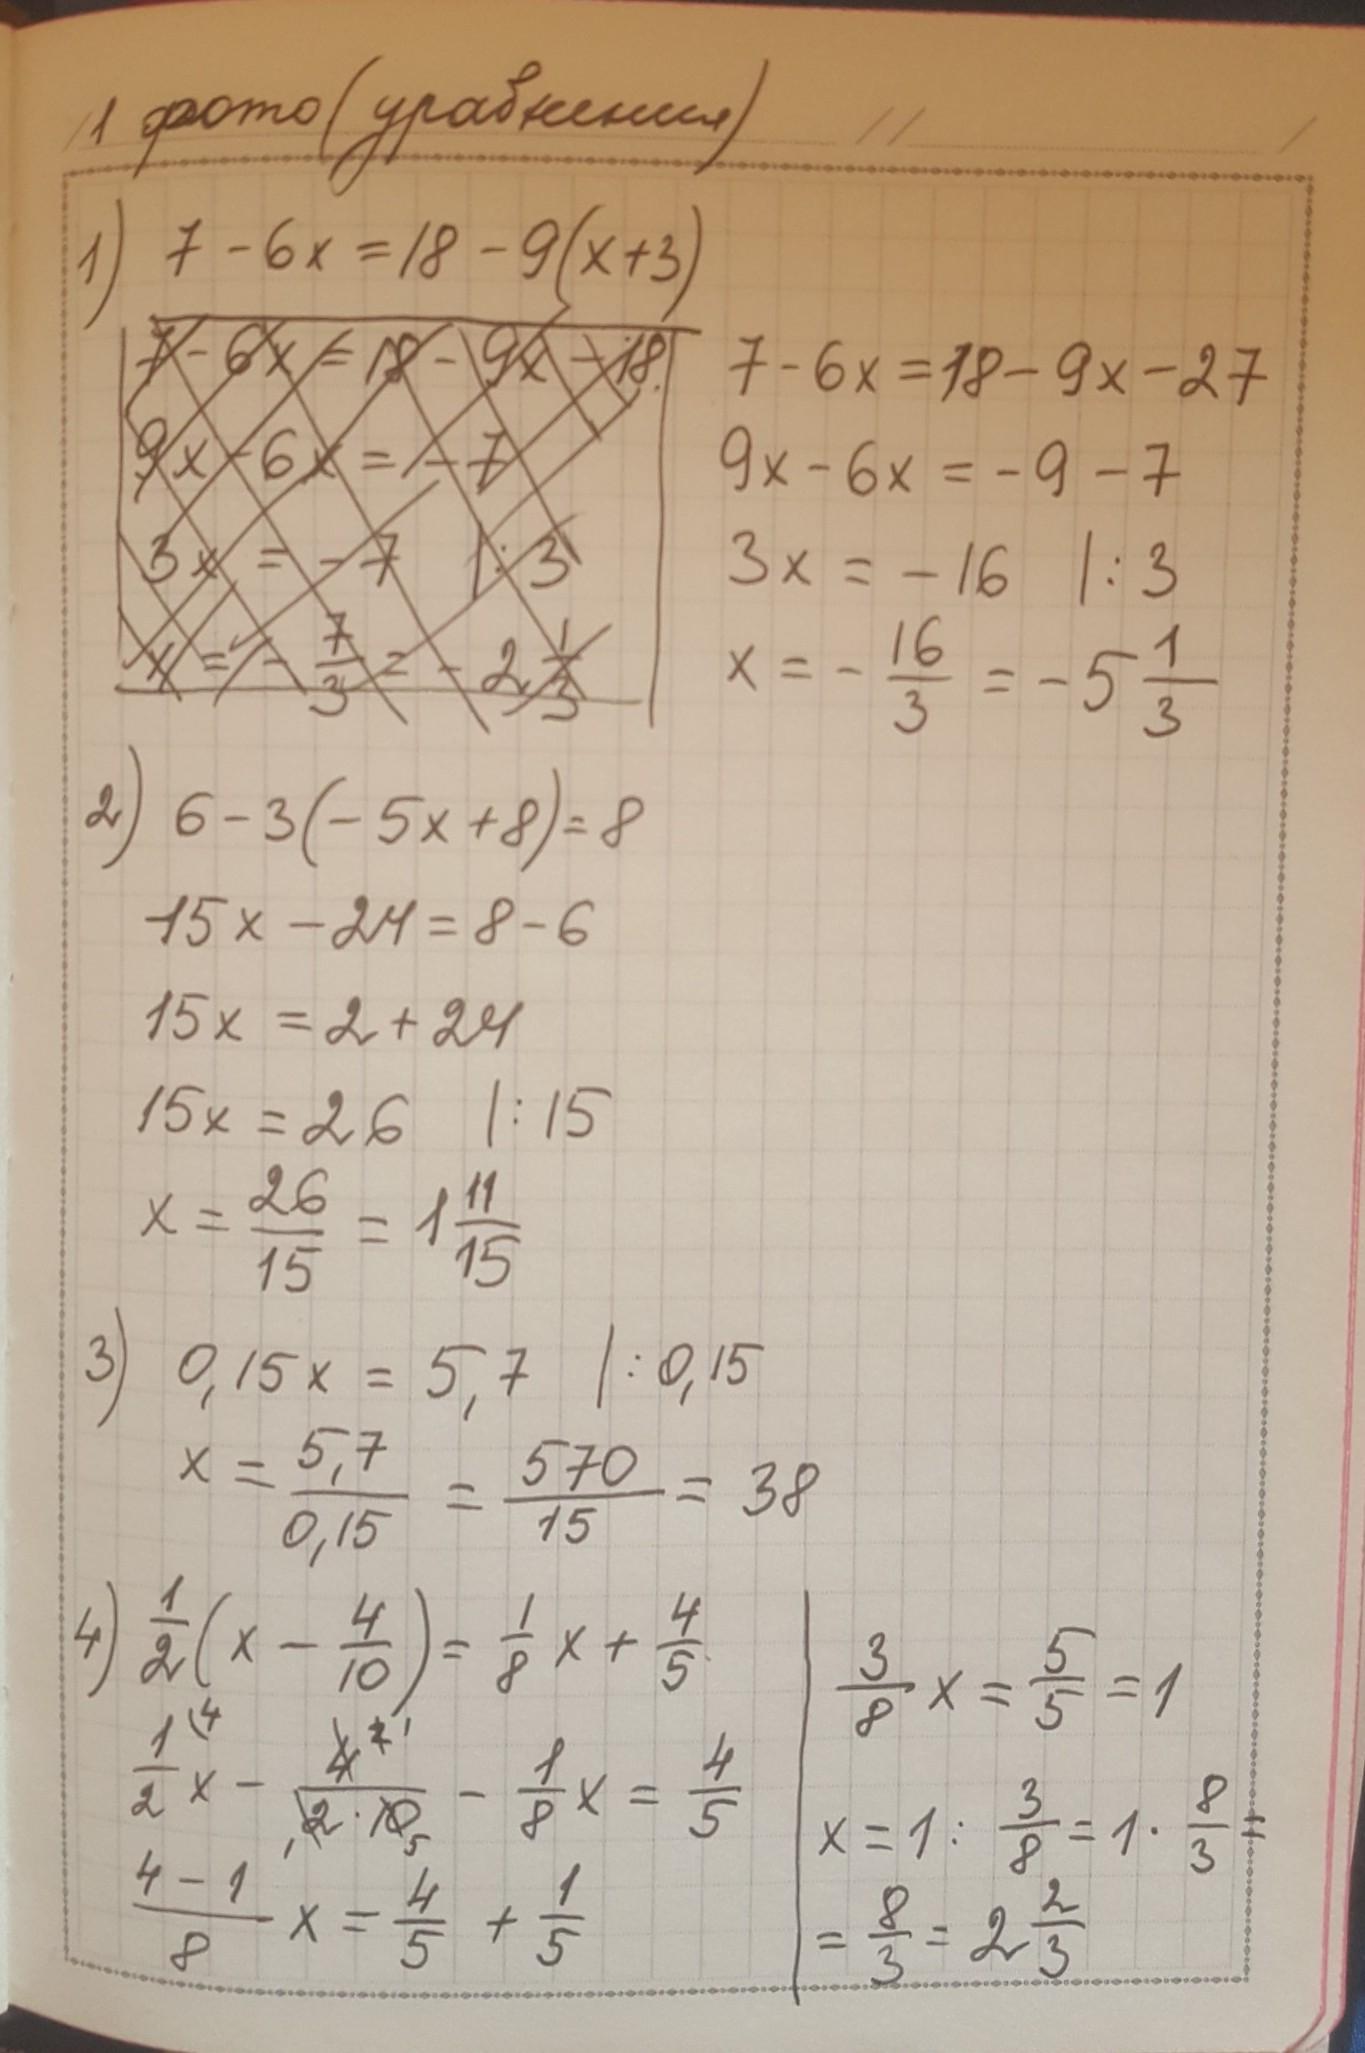 1 фото (уравнения)
1) 7 - 6x = 18 - 9(x+3)
7 - 6x = 18 - 9x - 18
9x - 6x = -7
3x = -7 |: 3
x = - 7/3 = - 2 1/3
7 - 6x = 18 - 9x - 27
9x - 6x = -9 - 7
3x = -16 |: 3
x = - 16/3 = -5 1/3
2) 6 - 3(-5x + 8) = 8
15x - 24 = 8 - 6
15x = 2 + 24
15x = 26 |: 15
x = 26/15 = 1 11/15
3) 0,15x = 5,7 |: 0,15
x = 5,7/0,15 = 570/15 = 38
4) 1/2 (x - 4/10) = 1/8 x + 4/5
1/2 x - 4/(2·10) - 1/8 x = 4/5
(4 - 1)/8 x = 4/5 + 1/5
3/8 x = 5/5 = 1
x = 1 : 3/8 = 1 · 8/3 =
= 8/3 = 2 2/3